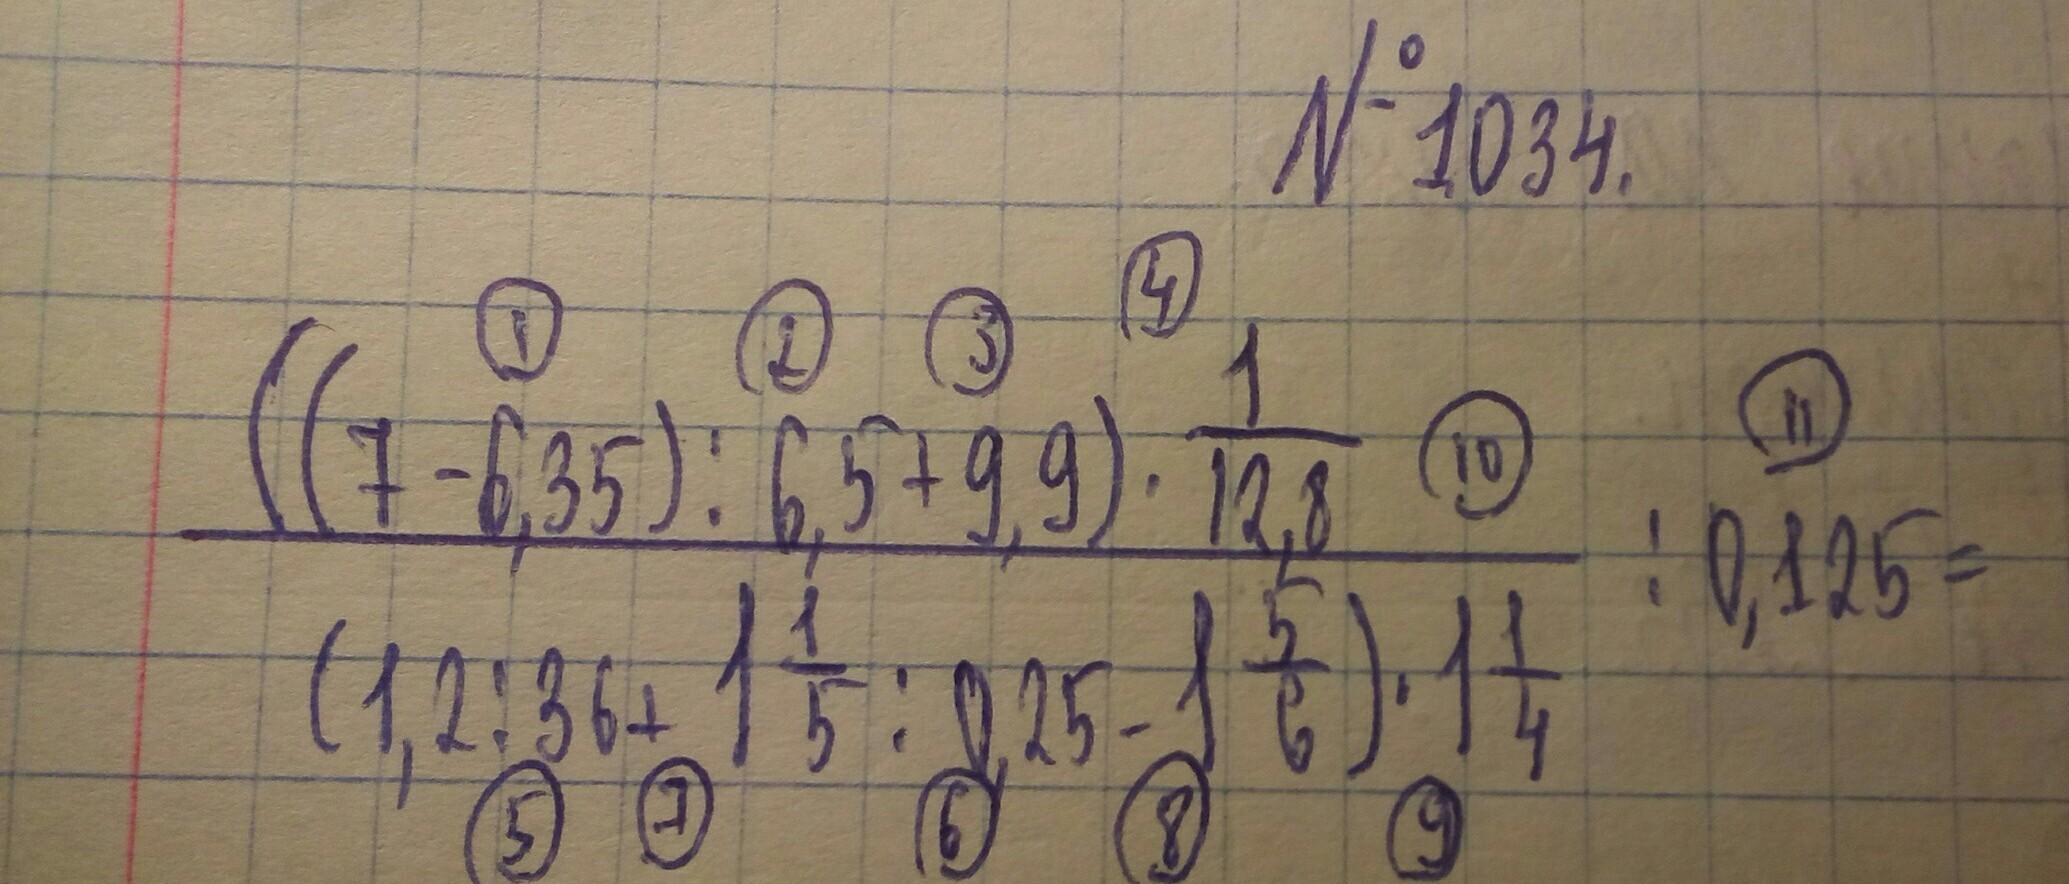 № 1034.
① ② ③ ④
((7-6,35):6,5+9,9)·1/12,8 ⑩ ⑪
:0,125=
(1,2:36+1 1/5:0,25-1 5/6)·1 1/4
⑤ ⑦ ⑥ ⑧ ⑨